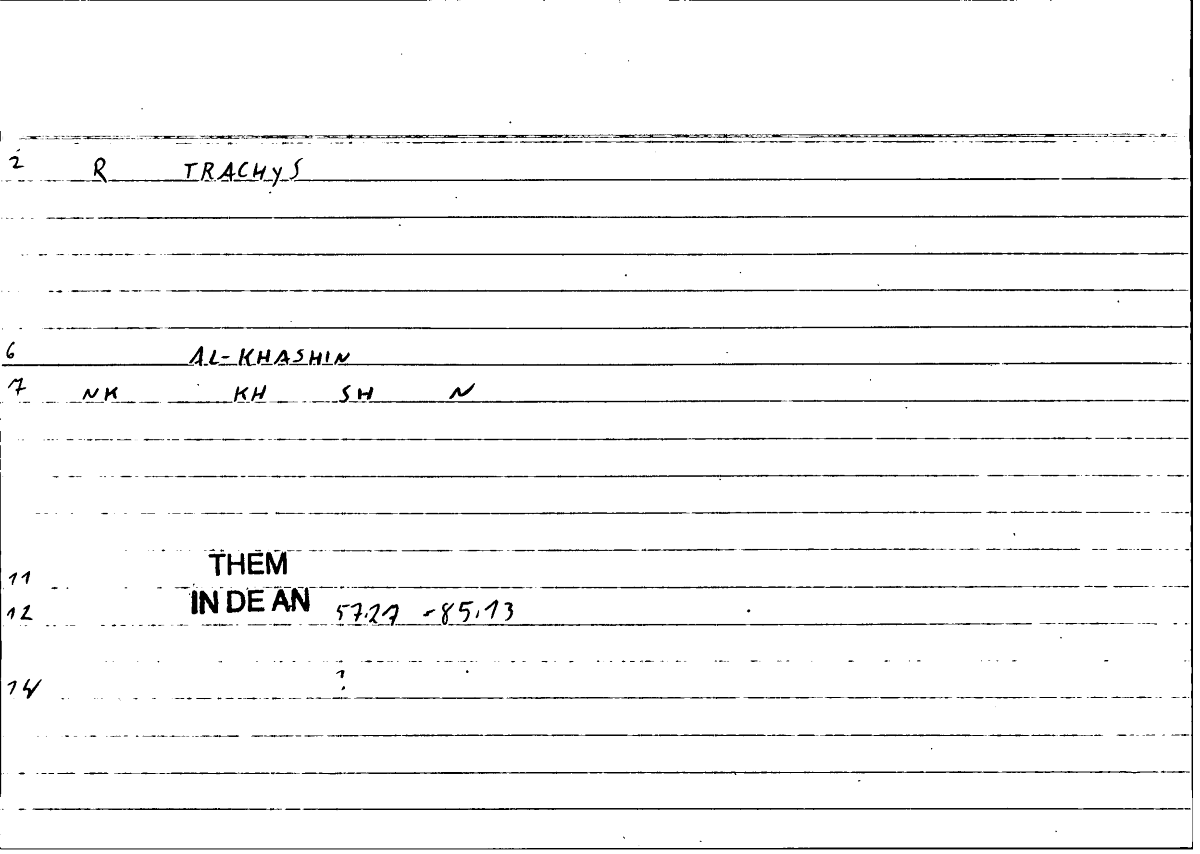 2 R TRACHYS
6 AL-KHASHIN
7 NK KH SH N
11 THEM
12 IN DE AN 57.27 - 85.13
14 ?